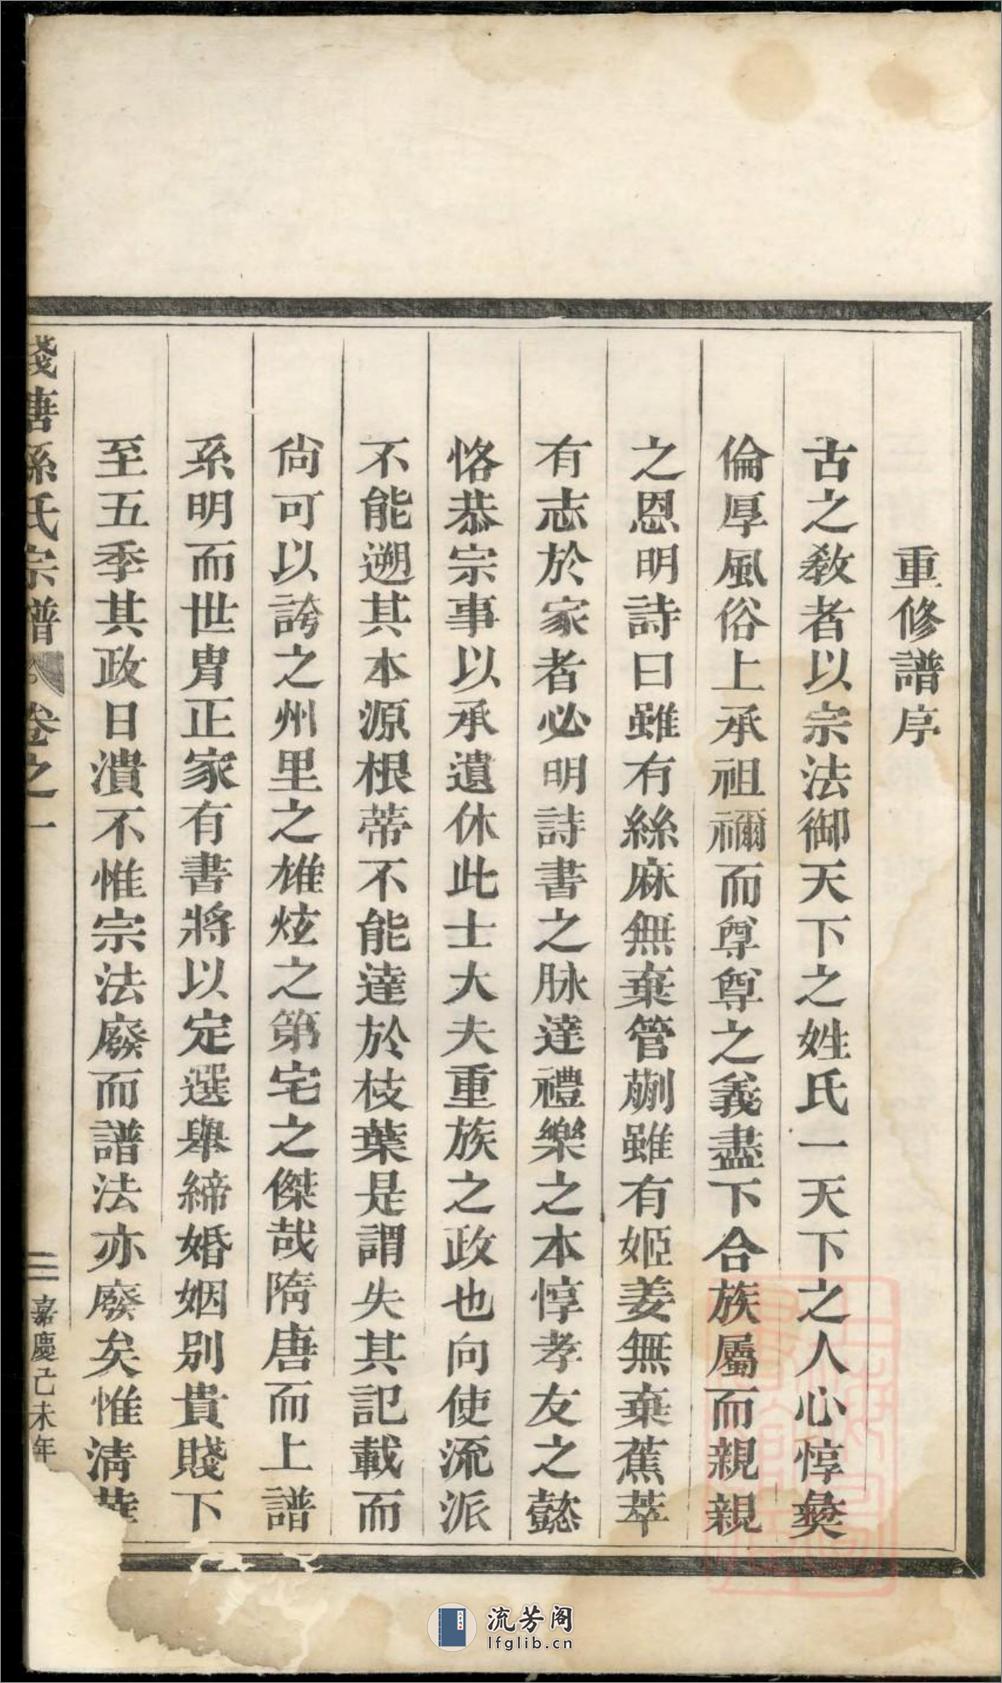 重修譜序
古之教者以宗法御天下之姓氏一天下之人心惇彜
倫厚風俗上承祖禰而尊尊之義盡下合族屬而親親
之恩明詩曰雖有絲麻無棄管蒯雖有姬姜無棄蕉萃
有志於家者必明詩書之脉達禮樂之本惇孝友之懿
恪恭宗事以承遺休此士大夫重族之政也向使流派
不能遡其本源根蒂不能達於枝葉是謂失其記載而
尙可以誇之州里之雄炫之第宅之傑哉隋唐而上譜
系明而世胄正家有書將以定選舉締婚姻别貴賤下
至五季其政日潰不惟宗法廢而譜法亦廢矣惟淸華
錢唐孫氏宗譜 卷之一
三 嘉慶己未年
流芳阁
lfglib.cn